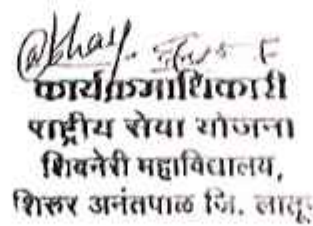 कार्यक्रमाधिकारी
राष्ट्रीय सेवा योजना
शिवनेरी महाविद्यालय,
शिरूर अनंतपाळ जि. लातू